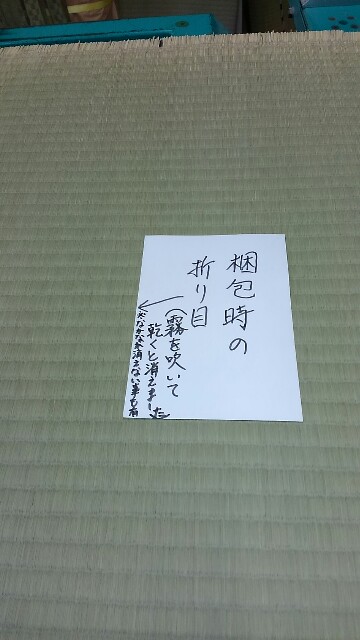 梱包時の
折り目
(霧を吹いて
乾くと消えました
なかなか消えない事も有